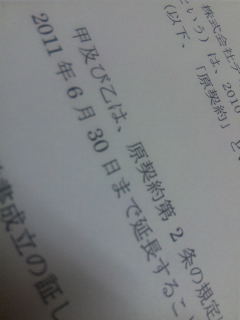 株式会社テ
という）は、2010
（以下、「原契約」と
甲及び乙は、原契約第 2 条の規定
2011 年 6 月 30 日まで延長すること
成立の証し